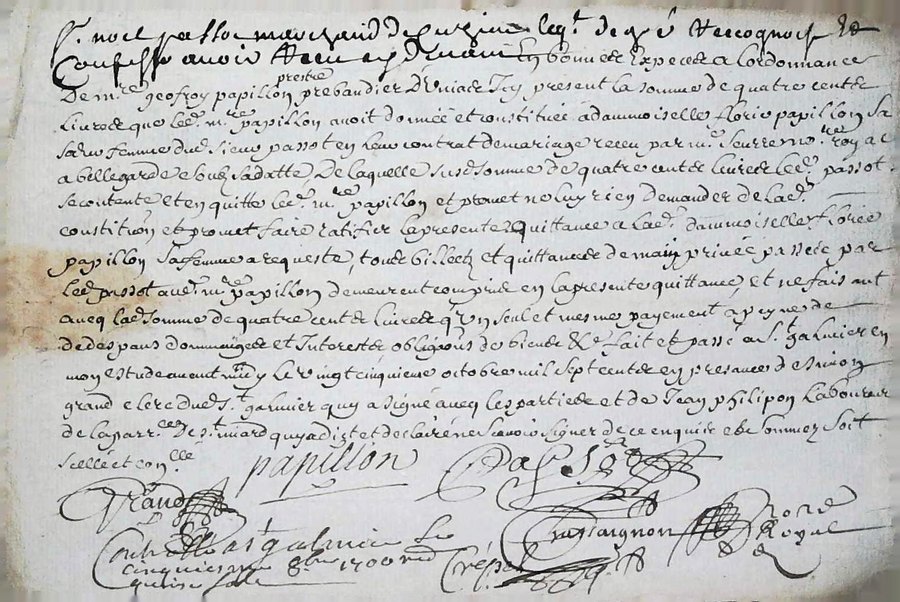 Sr noel passot marchand de
Confesse avoir heu et receu en bonnes Expeces a lordonnance
prestre
De mre geofroy papillon prebandier Icy present la somme de quatre cents
Livres que led. mre papillon avoit donnée et constituée a dammoiselle florie papillon sa
femme dud. sieur passot en leur contrat de mariage receu par me royal
a bellegarde soubz sa datte De laquelle susd. somme de quatre cents livres led. passot
se contente et en quitte led. mre papillon et promet ne luy rien demander de lad.
constitution et promet faire ratiffier la presente quittance a lad. dammoiselle florie
papillon sa femme a requeste, tous billets et quittances de main privée passees par
led. passot aud. mre papillon demeurent comprins en la presente quittance, et ne faisant
avecq lad. somme de quatre cents livres qu'un seul et mesme payement a peyne de
de despans dommaiges et Interests obligeons de biens &c fait et passé a St galmier en
mon estude avant midy le vingt cinquieme octobre mil sept cents en presance de
grand clerc dud. St galmier quy a signé avecq les parties et de Jean philipon Laboureur
de la parrsse De St quy a dit et declairé ne scavoir signer de ce enquis et sommez soit
scellé et conllé
papillon Passot
Grand
Chassaignon nore Royal
Controllé a St galmier le
cinquiesme 9bre 1700
quinze sols Crépet